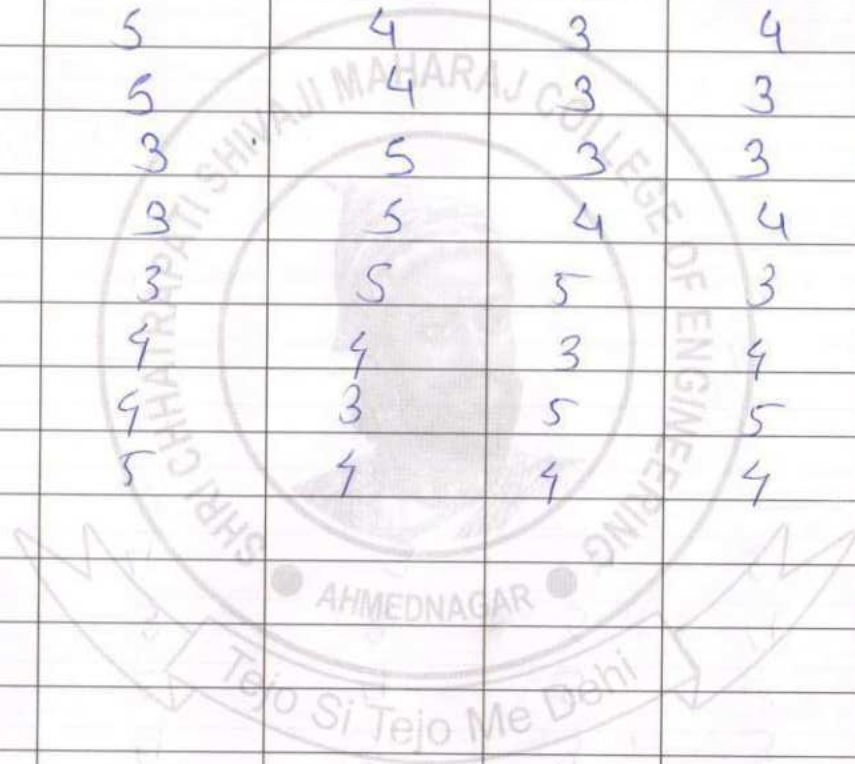 5 4 3 4
5 4 3 3
3 5 3 3
3 5 4 4
3 5 5 3
4 4 3 4
4 3 5 5
5 4 4 4
SHRI CHHATRAPATI SHIVAJI MAHARAJ COLLEGE OF ENGINEERING
AHMEDNAGAR
Tejo Si Tejo Me Dehi